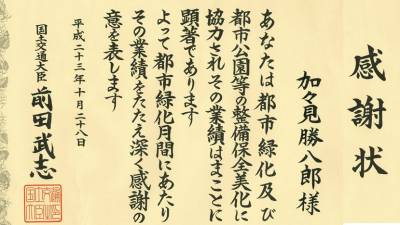 感謝状
加々見勝八郎様
あなたは都市緑化及び
都市公園等の整備保全美化に
協力されその業績はまことに
顕著であります
よって都市緑化月間にあたり
その業績をたたえ深く感謝の
意を表します
平成二十三年十月二十八日
国土交通大臣 前田武志